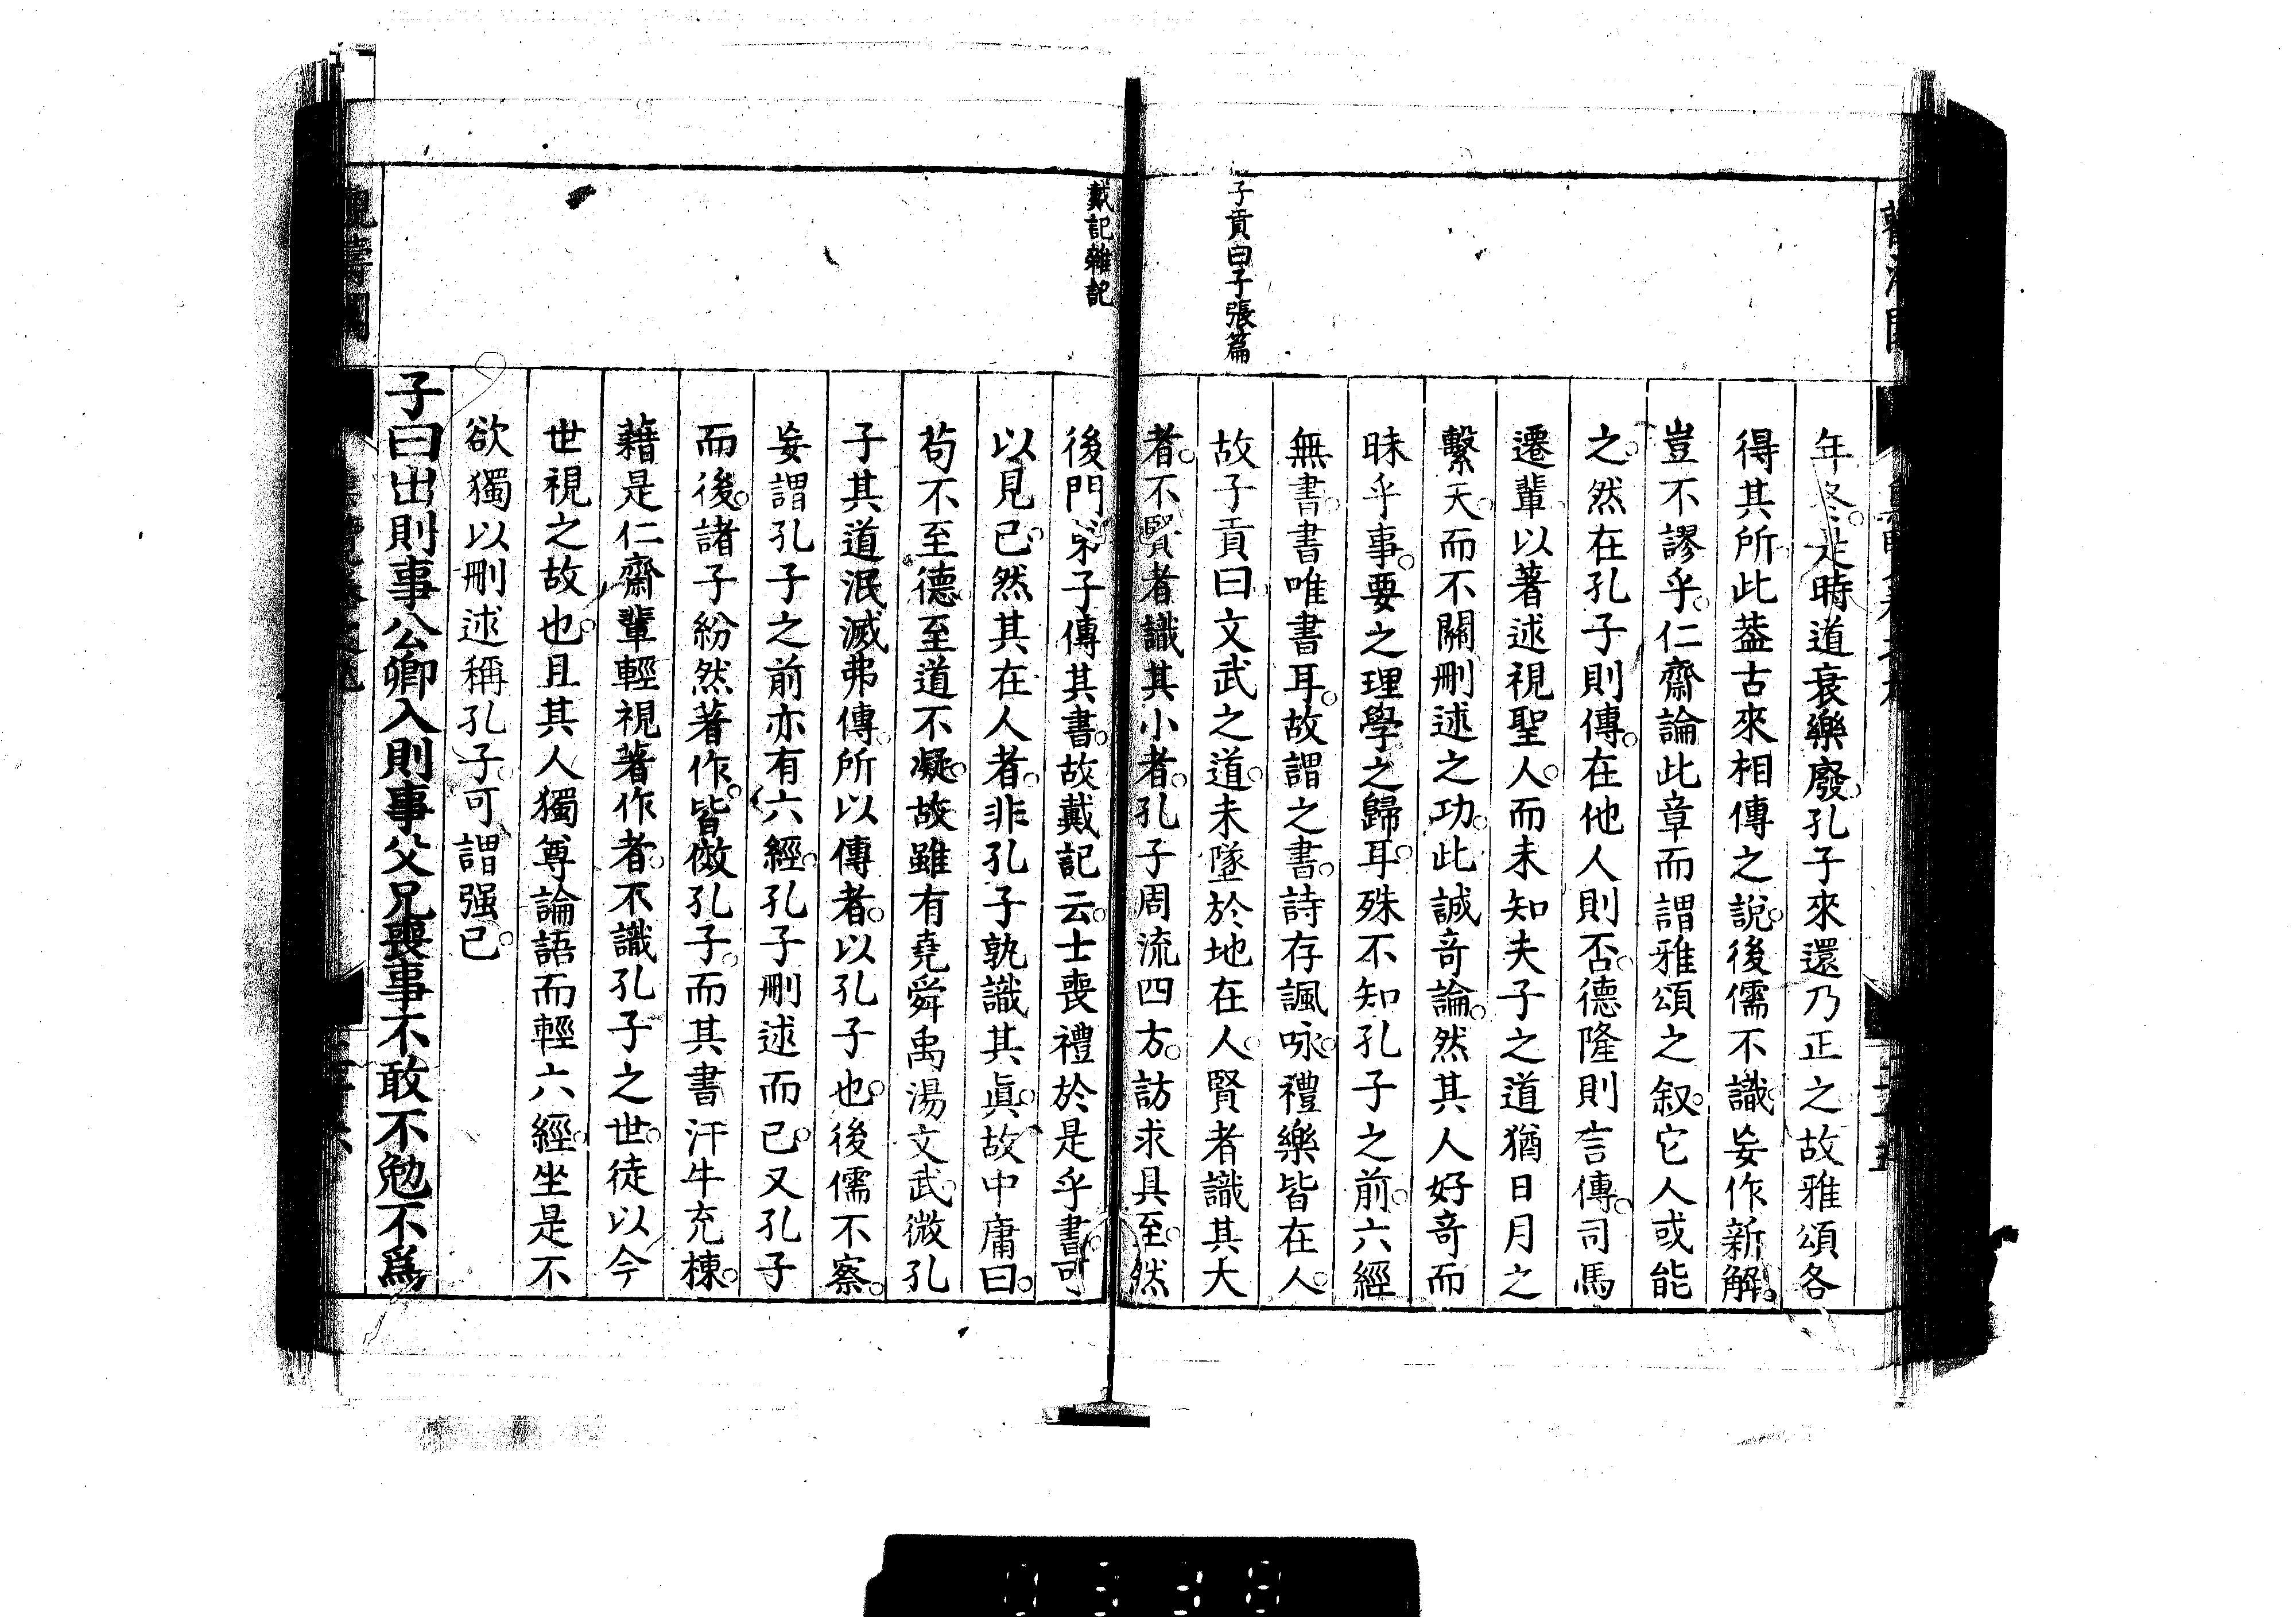 子貢曰子張篇
年冬是時道衰樂廢孔子來還乃正之故雅頌各
得其所此葢古來相傳之說後儒不識妄作新解
豈不謬乎仁齋論此章而謂雅頌之叙它人或能
之然在孔子則傳在他人則否德隆則言傳司馬
遷輩以著述視聖人而未知夫子之道猶日月之
繫天而不關刪述之功此誠奇論然其人好奇而
昧乎事要之理學之歸耳殊不知孔子之前六經
無書書唯書耳故謂之書詩存諷咏禮樂皆在人
故子貢曰文武之道未墜於地在人賢者識其大
者不賢者識其小者孔子周流四方訪求具至然
戴記雜記
後門弟子傳其書故戴記云士喪禮於是乎書可
以見已然其在人者非孔子孰識其眞故中庸曰
苟不至德至道不凝故雖有堯舜禹湯文武微孔
子其道泯滅弗傳所以傳者以孔子也後儒不察
妄謂孔子之前亦有六經孔子刪述而已又孔子
而後諸子紛然著作皆倣孔子而其書汗牛充棟
藉是仁齋輩輕視著作者不識孔子之世徒以今
世視之故也且其人獨尊論語而輕六經坐是不
欲獨以刪述稱孔子可謂强已
子曰出則事公卿入則事父兄喪事不敢不勉不爲